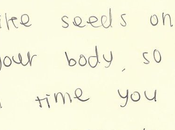 ike seeds on
your body, so
time you